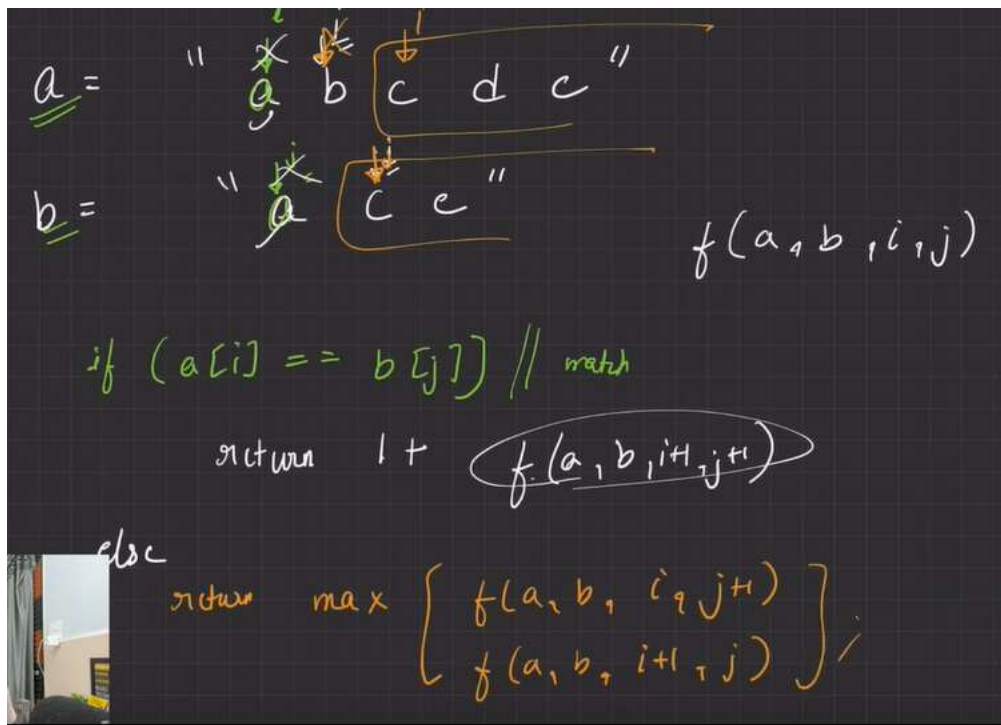 a = "a b c d c"
b = "a c e"
f(a, b, i, j)
if (a[i] == b[j]) // match
return 1 + f(a, b, i+1, j+1)
else
return max [ f(a, b, i, j+1)
f(a, b, i+1, j) ];